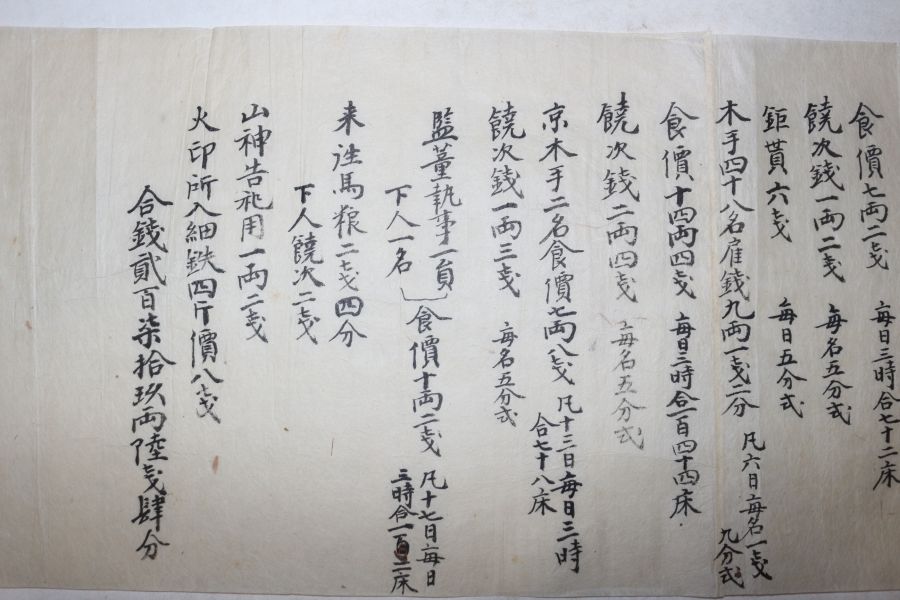 食價七両二戔 每日三時合七十二床
饒次錢一両二戔 每名五分式
鉅貰六戔 每日五分式
木手四十八名雇錢九両一戔二分 凡六日每名一戔
九分式
食價十四両四戔 每日三時合一百四十四床
饒次錢二両四戔 每名五分式
京木手二名食價七両八戔 凡十三日每日三時
合七十八床
饒次錢一両三戔 每名五分式
監董執事一員
下人一名
食價十両二戔 凡十七日每日
三時合一百二床
来徃馬粮二戔四分
下人饒次二戔
山神告祀用一両二戔
火印所入細鉄四斤價八戔
合錢貳百柒拾玖両陸戔肆分